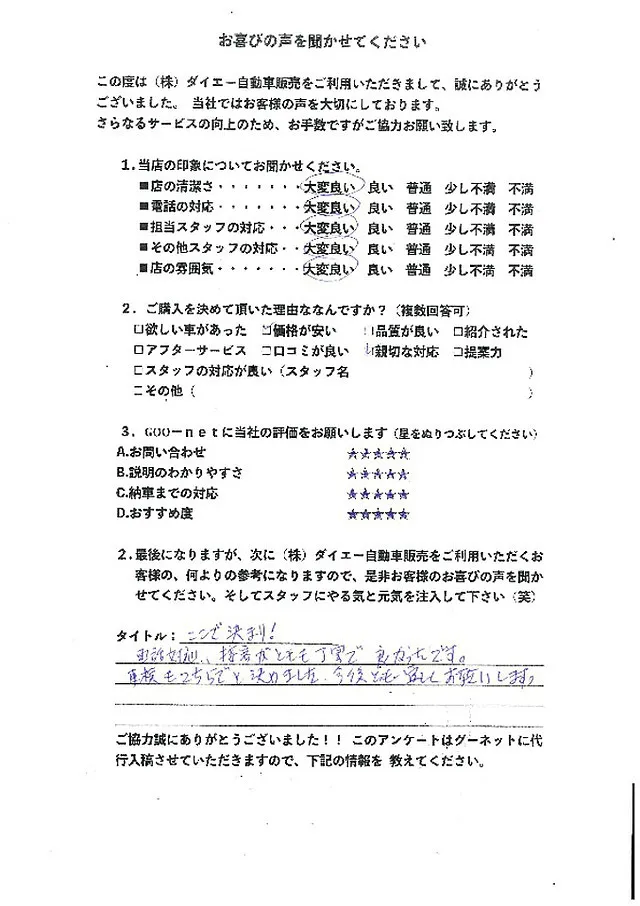 お喜びの声を聞かせてください
この度は（株）ダイエー自動車販売をご利用いただきまして、誠にありがとう
ございました。 当社ではお客様の声を大切にしております。
さらなるサービスの向上のため、お手数ですがご協力お願い致します。
1.当店の印象についてお聞かせください。
■店の清潔さ・・・・・・・大変良い 良い 普通 少し不満 不満
■電話の対応・・・・・・・大変良い 良い 普通 少し不満 不満
■担当スタッフの対応・・・大変良い 良い 普通 少し不満 不満
■その他スタッフの対応・・大変良い 良い 普通 少し不満 不満
■店の雰囲気・・・・・・・大変良い 良い 普通 少し不満 不満
2．ご購入を決めて頂いた理由ななんですか？（複数回答可）
□欲しい車があった ☑価格が安い □品質が良い □紹介された
□アフターサービス □口コミが良い ☑親切な対応 □提案力
□スタッフの対応が良い（スタッフ名 ）
□その他（ ）
3．GOO－netに当社の評価をお願いします（星をぬりつぶしてください）
A.お問い合わせ ★★★★★
B.説明のわかりやすさ ★★★★★
C.納車までの対応 ★★★★★
D.おすすめ度 ★★★★★
2．最後になりますが、次に（株）ダイエー自動車販売をご利用いただくお
客様の、何よりの参考になりますので、是非お客様のお喜びの声を聞か
せてください。そしてスタッフにやる気と元気を注入して下さい（笑）
タイトル：ここで決まり！
電話対応、接客がとても丁寧で良かったです。
車検もこちらでと決めました。今後とも宜しくお願いします。
ご協力誠にありがとうございました！！ このアンケートはグーネットに代
行入稿させていただきますので、下記の情報を 教えてください。